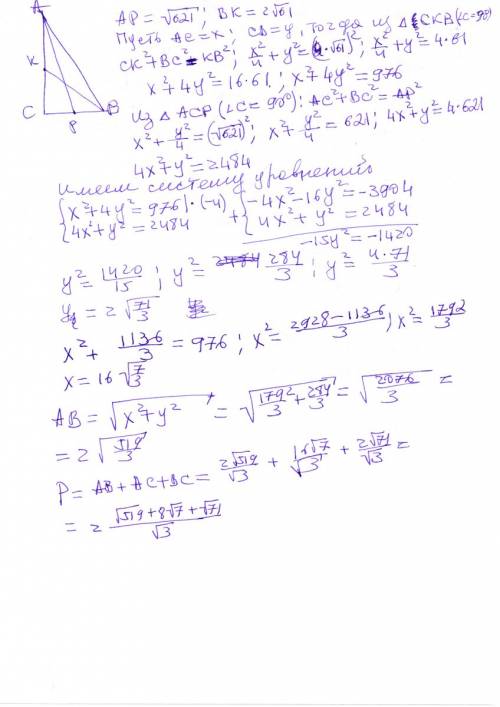 A
K
C
P
B
AP = √621 ; BK = 2√61
Пусть AC = x ; CB = y, тогда из △ CKB (∠C = 90°)
CK² + BC² = KB² ; x²/4 + y² = (2·√61)² ; x²/4 + y² = 4·61
x² + 4y² = 16·61 ; x² + 4y² = 976
Из △ ACP (∠C = 90°) : AC² + BC² = AP²
x² + y²/4 = (√621)² ; x² + y²/4 = 621 ; 4x² + y² = 4·621
4x² + y² = 2484
имеем систему уравнений
{ x² + 4y² = 976 | · (-4) + { -4x² - 16y² = -3904
{ 4x² + y² = 2484 { 4x² + y² = 2484
-15y² = -1420
y² = 1420/15 ; y² = 284/3 ; y² = 4·71/3
y = 2√(71/3)
x² + 1136/3 = 976 ; x² = (2928 - 1136)/3 ; x² = 1792/3
x = 16√(7/3)
AB = √(x² + y²) = √(1792/3 + 284/3) = √(2076/3) =
= 2√(519/3)
P = AB + AC + BC = 2√519/√3 + 16√7/√3 + 2√71/√3 =
= 2 (√519 + 8√7 + √71)/√3